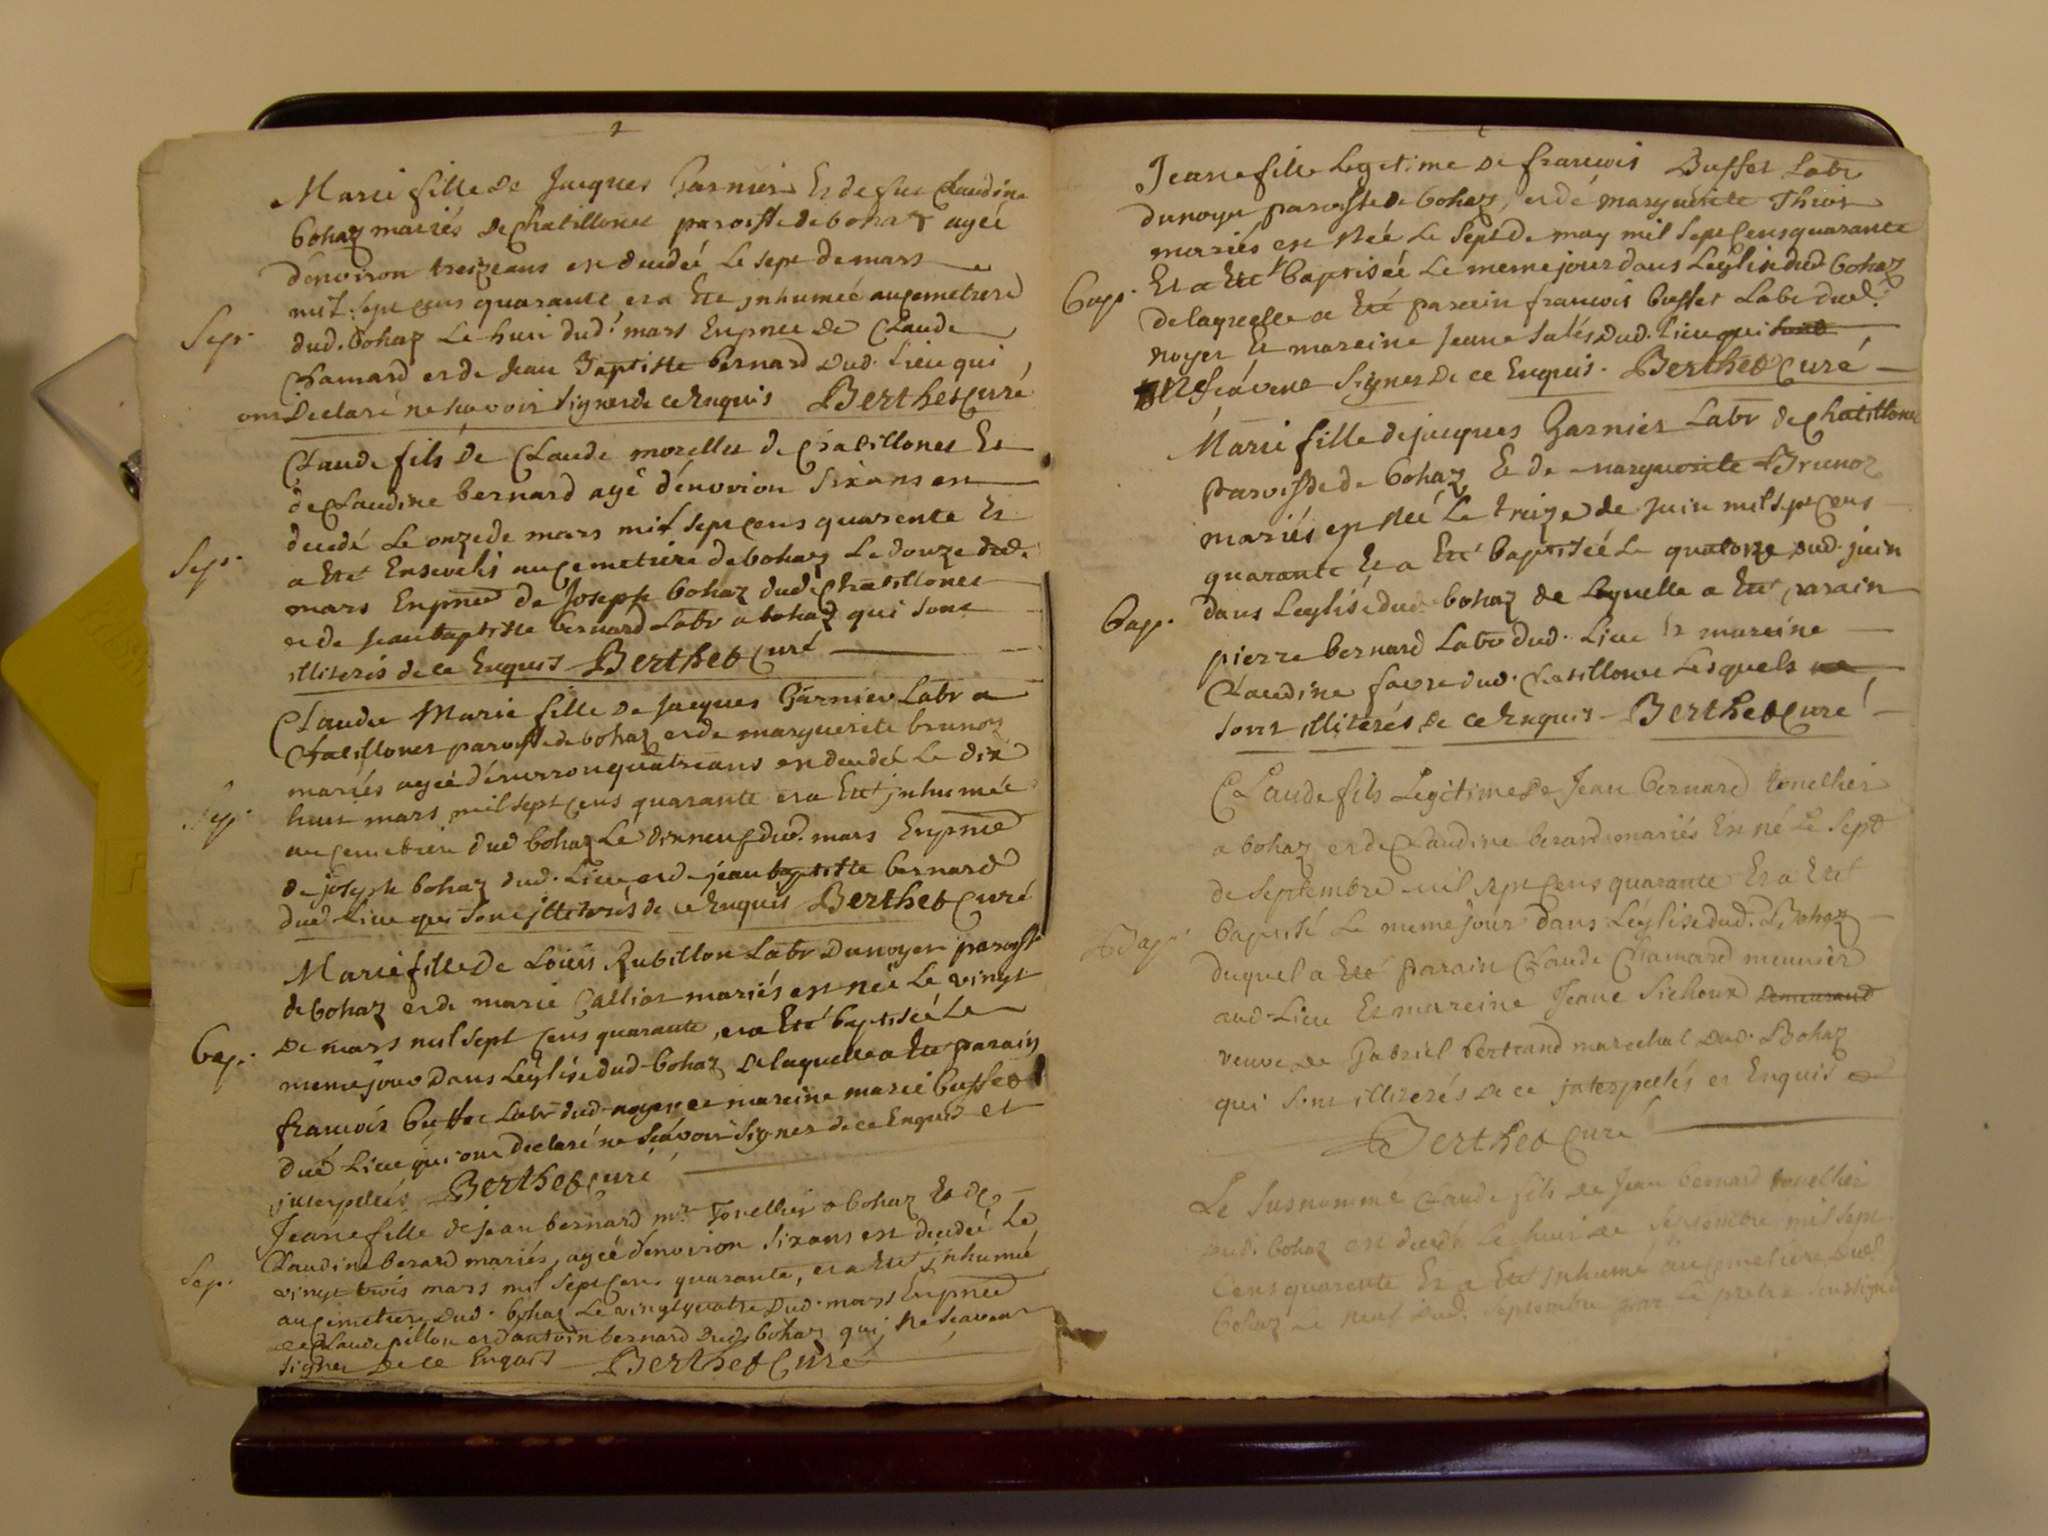 Marie fille de Jacques Garnier Et de fue Claudine
bohaz mariés de chatillonet paroisse de bohaz agée
d'environ treizeans est decedée Le sept de mars
mil sept cens quarante et a Eté jnhumée au cemetiere
Sep.
dud. bohaz Le huit dud. mars Enpnce de Claude
Chamard et de Jean Baptiste bernard dud. Lieu qui
ont Declaré ne scavoir signer de ce Enquis Berthet Curé
Claude fils de Claude morellet de Chatillonet Et
de Claudine bernard agé d'environ sixans est
decedé Le onze de mars mil sept cens quarente Et
Sep.
a Eté Enseveli au cemetiere de bohaz Le douze dud.
mars Enpnce de Joseph bohaz dud. Chatillonet
et de Jean baptiste bernard Labr a bohaz qui sont
illiterés de ce Enquis Berthet Curé
Claudie Marie fille de Jacques Garnier Labr a
Chatillonet paroisse de bohaz et de marguerite brunoz
mariés agée d'environ quatreans est decedée Le dix
Sep.
huit mars mil sept cens quarante et a Eté jnhumée
au cemetiere dud bohaz Le dixneuf dud. mars Enpnce
de joseph bohaz dud. Lieu et de jean baptiste bernard
dud. Lieu qui sont jlliterés de ce Enquis Berthet Curé
Marie fille de Loüis Rubillon Labr du noyer paroisse
de bohaz et de marie Calliat mariés est née Le vingt
Bap.
de mars mil sept cens quarante, et a Eté baptisée Le
meme jour dans Leglise dud bohaz de laquelle a Eté parain
francois buffet Labr dud. noyer et mareine marie buffet
dud Lieu qui ont declaré ne scavoir signer de ce Enquis et
jnterpellés Berthet Curé
Jeane fille de jean bernard mr. Tonellier a bohaz Et de
Sep.
Claudine berard mariés, agée d'environ sixans est decedée Le
vingt trois mars mil sept cens quarante, et a Eté jnhumée
au cemetiere dud. bohaz Le vingtquatre dud. mars Enpnce
de Claude pillon et d'antoin bernard dud. bohaz qui ne scavent
signer de ce Enquis Berthet Curé
Jeane fille Legitime de francois Buffet Labr
du noyer paroisse de bohaz, et de marguerite Thiot
mariés est Née Le Sept De may mil sept cens quarante
Bap.
Et a Eté baptisée Le meme jour dans Leglise dud bohaz
de laquelle a Eté parain francois buffet Labr dud.
noyer Et mareine Jeane Salés dud. Lieu qui sont
Ne scavent signer de ce Enquis. Berthet Curé
Marie fille de jacques Garnier Labr de chatillonet
paroisse de bohaz Et de marguerite Brunoz
mariés est Née Le treize de Juin mil sept cens
quarante Et a Eté baptisée Le quatorze dud. juin
Bap.
dans Leglise dud bohaz de Laquelle a Eté parain
pierre bernard Labr dud. Lieu Et mareine
Claudine favre dud. Chatillonet Lesquels ne
sont illiterés de ce Enquis Berthet Curé
Claude fils Legitime de Jean bernard tonellier
a bohaz et de Claudine berard mariés Est né Le Sept
de Septembre mil sept cens quarante Et a Eté
Bap.
baptisé Le meme jour dans Léglise dud. Bohaz
duquel a Eté parain Claude Chamard meunier
aud. Lieu Et mareine Jeane Sichoux demeurand
veuve de Gabriel bertrand marechal dud. Bohaz
qui sont illiterés de ce jnterpellés et Enquis
Berthet Curé
Le susnommé Claude fils de Jean bernard tonellier
aud. bohaz est decedé Le huit de septembre mil sept
Cens quarente Et a Eté jnhumé au cemetiere dud.
bohaz Le neuf dud. septembre par Le pretre soussigné